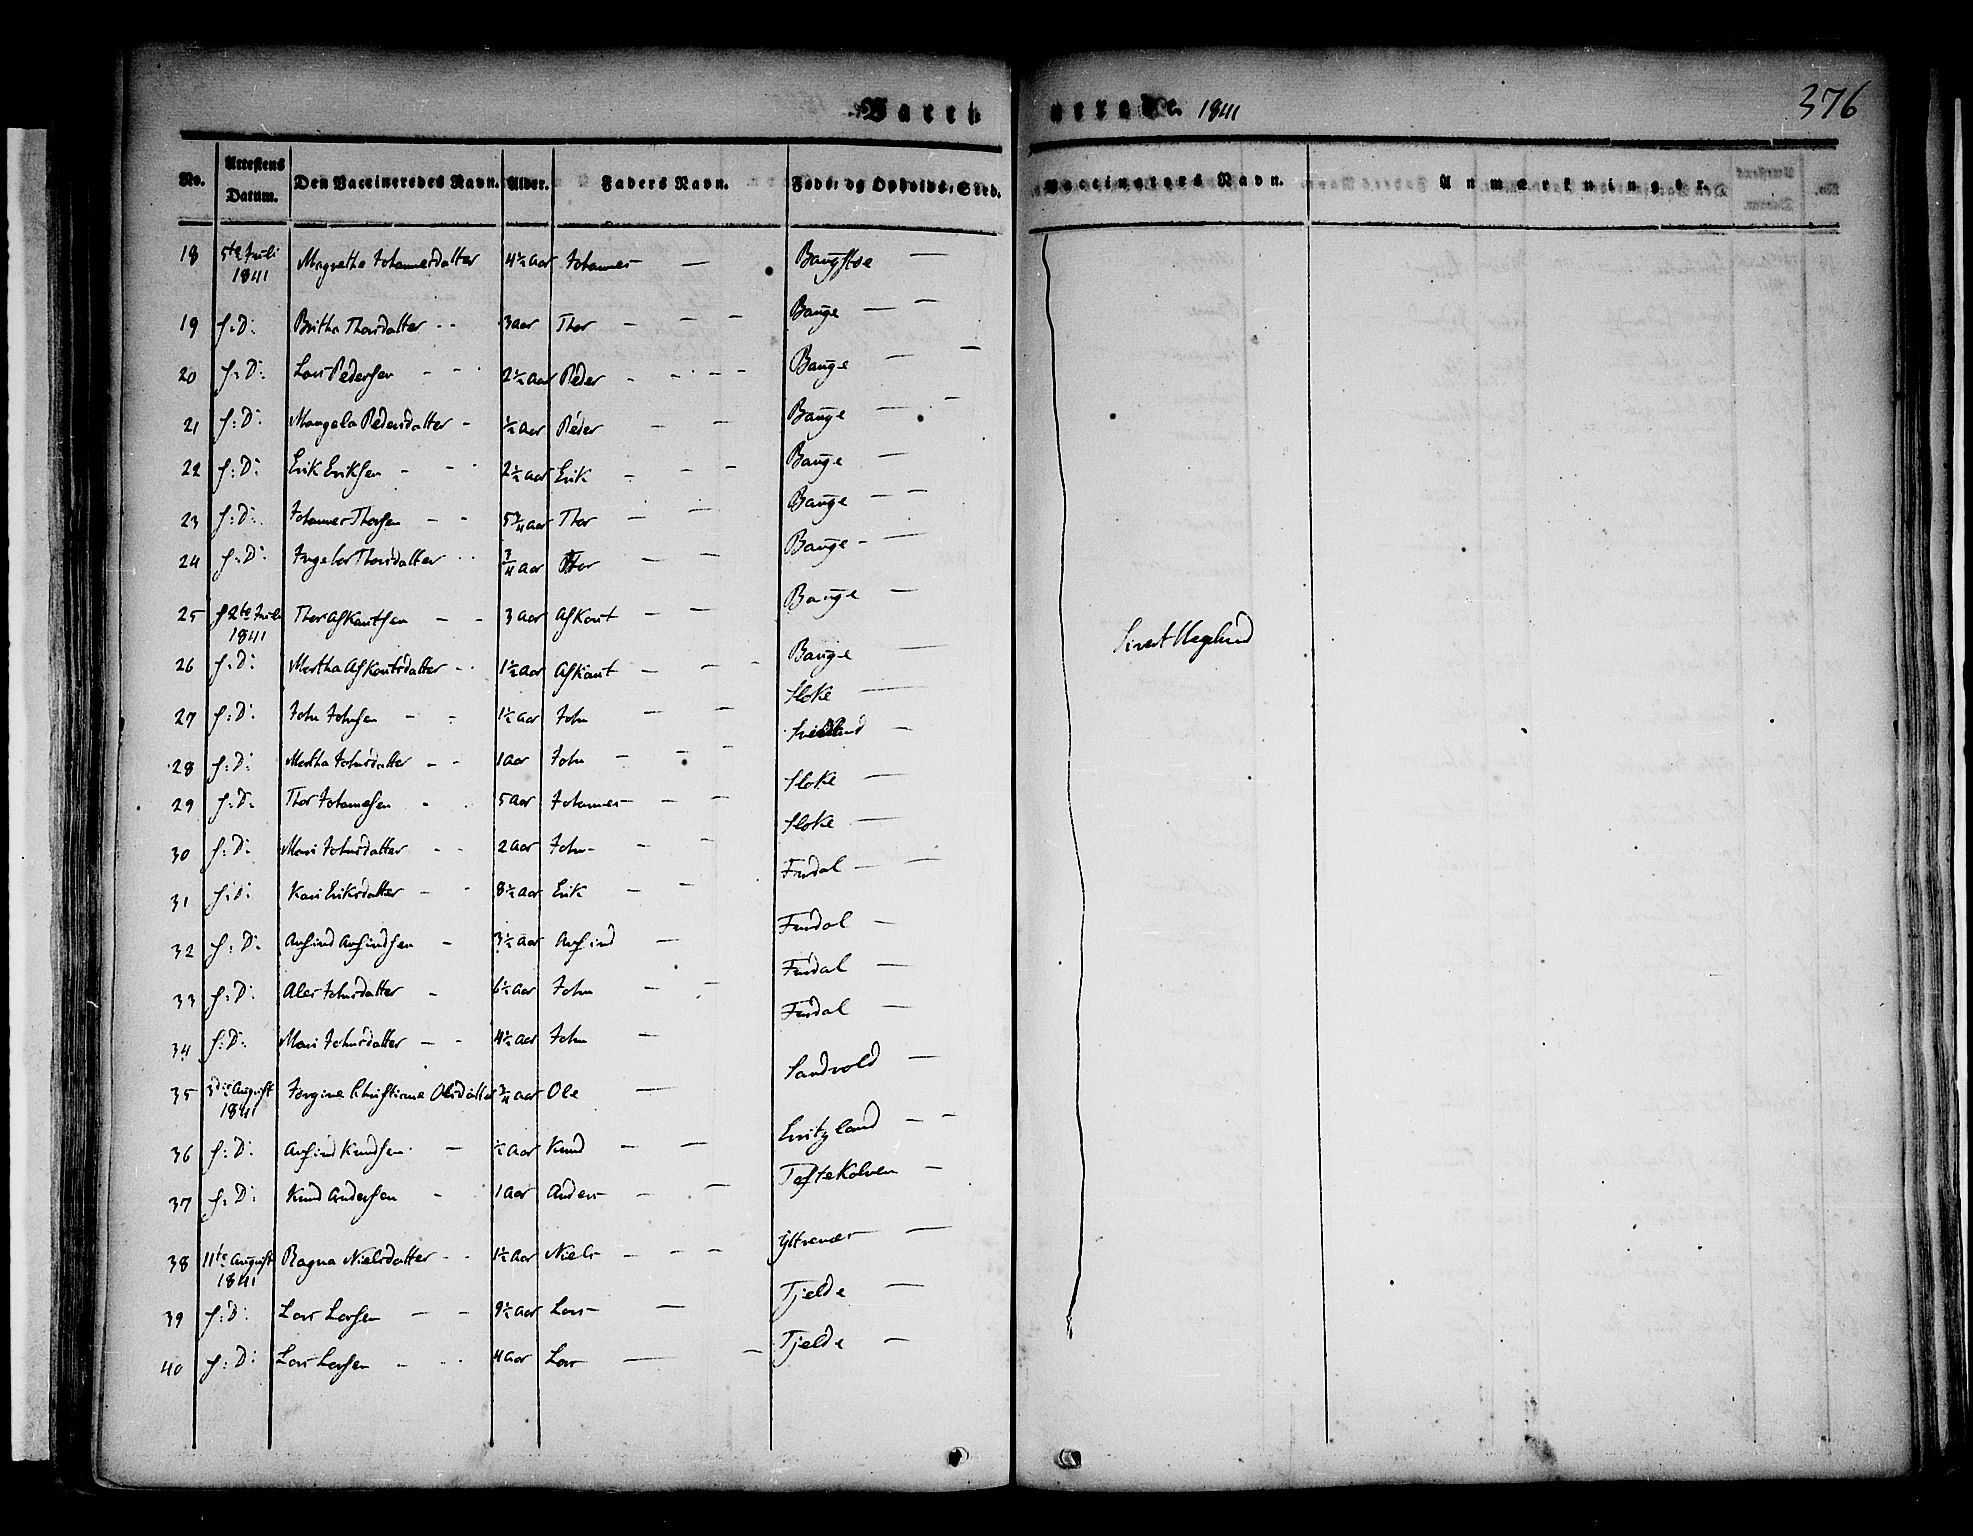 Vacci nerede. 1841 376
No. Attestens Datum. Den Vaccineredes Navn. Alder. Faders Navn. Føde- og Opholds-Sted. Vaccinateurs Navn. Anmærkninger.
18 5te Juli 1841 Magrethe Johannesdatter 4½ Aar Johannes — Baugstøe —
19 s: D: Britha Thorsdatter 3 Aar Thor — Bauge —
20 s: D: Lars Pedersen 2½ Aar Peder — Bauge —
21 s: D: Mangela Pedersdatter ½ Aar Peder — Bauge —
22 s: D: Erik Eriksen 2½ Aar Erik — Bauge —
23 s: D: Johannes Thorsen 5¾ Aar Thor — Bauge —
24 s: D: Ingebor Thorsdatter ¾ Aar Thor — Bauge —
25 Juli 1841 Thor Askautsen 3 Aar Askaut — Bauge —
26 s: D: Martha Askautsdatter 1½ Aar Askaut — Bauge —
27 s: D: John Johnsen 1½ Aar John — Sloke —
28 s: D: Martha Johnsdatter 1 Aar John —
29 s: D: Thor Johannesen 5 Aar Johannes — Sloke —
30 s: D: Mari Johnsdatter 2 Aar John — Sloke —
31 s: D: Kari Eriksdatter 8½ Aar Erik — Furdal —
32 s: D: Arfind Arfindsen 3½ Aar Arfind — Furdal —
33 s: D: Ales Johnsdatter 6½ Aar John — Furdal —
34 s: D: Mari Johnsdatter 4½ Aar John — Furdal —
35 3die August 1841 Jørgine Christiane Olesdatter ¾ Aar Ole — Sandvold —
36 s: D: Arfind Knudsen ½ Aar Knud —
37 s: D: Knud Andersen 1 Aar Anders — Toftekolven —
38 11te August 1841 Ragna Nielsdatter 1½ Aar Niels — Yttrenæs —
39 s: D: Lars Larsen 9½ Aar Lars — Tjelde —
40 s: D: Lars Larsen 4 Aar Lars — Tjelde —
Sivert